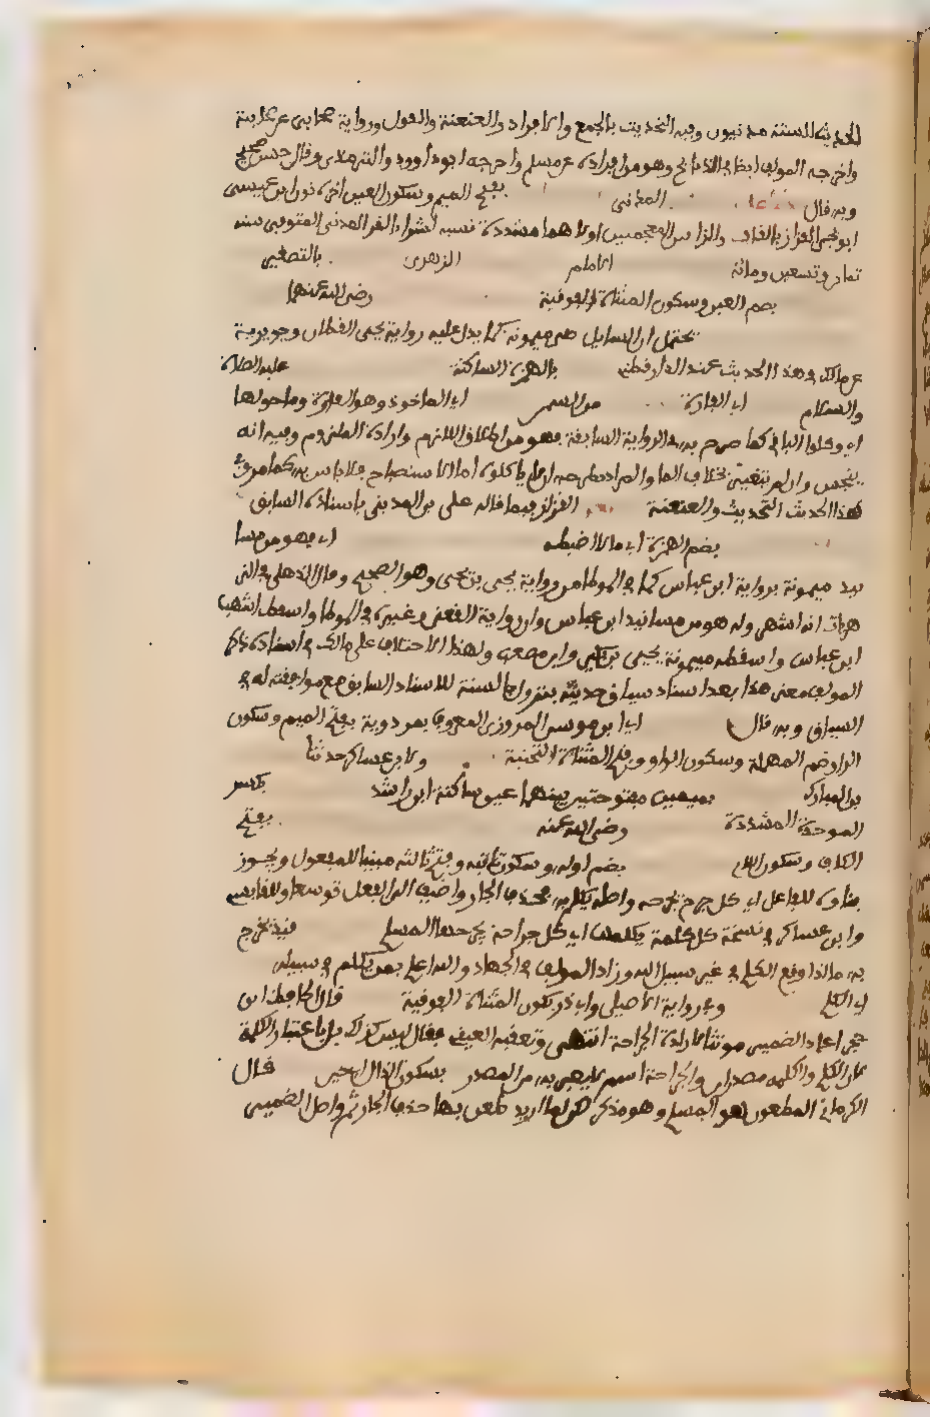 الحديث الستة مدنيون وفيه التحديث بالجمع والافراد والعنعنة والقول ورواية صحابى عن صحابية
واخرجه المولف ايضا فى الذبايح وهو من افراده عن مسلم واخرجه ابو داوود والترمذى وقال حسن صحيح
وبه قال المدنى بفتح الميم وسكون العين اخره نون ابن عيسى
ابو يحيى القزاز بالقاف والزايين المعجمتين اولاهما مشددة نسبه لشراء القز المدنى المتوفى سنه
ثمان وتسعين ومائة الامام الزهرى بالتصغير
بضم العين وسكون المثناة الفوقية رضى الله عنهما
يحتمل ان السايل هى ميمونة كما يدل عليه رواية يحيى القطان وجويرية
عن مالك فى هذا الحديث عند الدارقطنى بالهمزة الساكنة عليه الصلاة
والسلام اى الفارة من السمن اى الماخوذ وهو الفارة وما حولها
اى وكلوا الباقى كما صرح به فى الرواية السابقة فهو من اطلاق اللازم وارادة الملزوم وفيه انه
ينجس وان لم يتغير بخلاف الما والمراد بطرحه ان لا ياكلوه اما الاستصباح فلا باس به كما مر وفى
هذا الحديث التحديث والعنعنة القزاز فيما قاله على بن المدينى باسناده السابق
بضم الهمزة اى ما لا اضبطه اى فهو من مسا
نيد ميمونة برواية ابن عباس كما فى الموطا من رواية يحيى بن يحيى وهو الصحيح وقال الذهلى فى الز
هريات انه اشهر وله هو من مسانيد ابن عباس وان رواية القعنبى وغيره فى الموطا واسقط اشهب
ابن عباس واسقط ميمونة يحيى بن بكير وابو مصعب ولهذا الاختلاف على مالك فى اسناده ذكر
المولف معن هذا بعد اسناد سياق حديثه بنزول بالنسبة للاسناد السابق مع موافقته له فى
السياق وبه قال اى ابن موسى المروزى المعروف بمردوية بفتح الميم وسكون
الرا وضم المهملة وسكون الواو وفتح المثناة التحتية ولابن عساكر حدثنا
بن المبارك بميمين مفتوحتين بينهما عين ساكنة ابن راشد بكسر
الموحدة المشددة رضى الله عنه بفتح
الكاف وسكون اللام بضم اوله وسكون ثانيه وفتح ثالثه مبنيا للمفعول ويجوز
بناوه للفاعل اى كل جرح يجرحه واصله يكلم به فحذف الجار واضيف الى الفعل توسعا وللقابسى
وابن عساكر فى نسخة كل كلمة يكلمها اى كل جراحة يجرحها المسلم قيد يخرج
به ما اذا وقع الكلم فى غير سبيل الله وزاد المولف فى الجهاد والله اعلم بمن يكلم فى سبيله
اى الكلم وفى رواية الاصيلى وابى ذر تكون المثناة الفوقية قال الحافظ ابن
حجر اعاد الضمير مونثا لارادة الجراحة انتهى وتعقبه العينى فقال ليس كذلك بل باعتبار الكلمة
لان الكلم والكلمة مصدران والجراحة اسم لا يعبر به عن المصدر بسكون الذال اى حين قال
الكرمانى المطعون هو المسلم وهو مذكر لكن لما اريد طعن بها حذف الجار ثم واصل الضمير